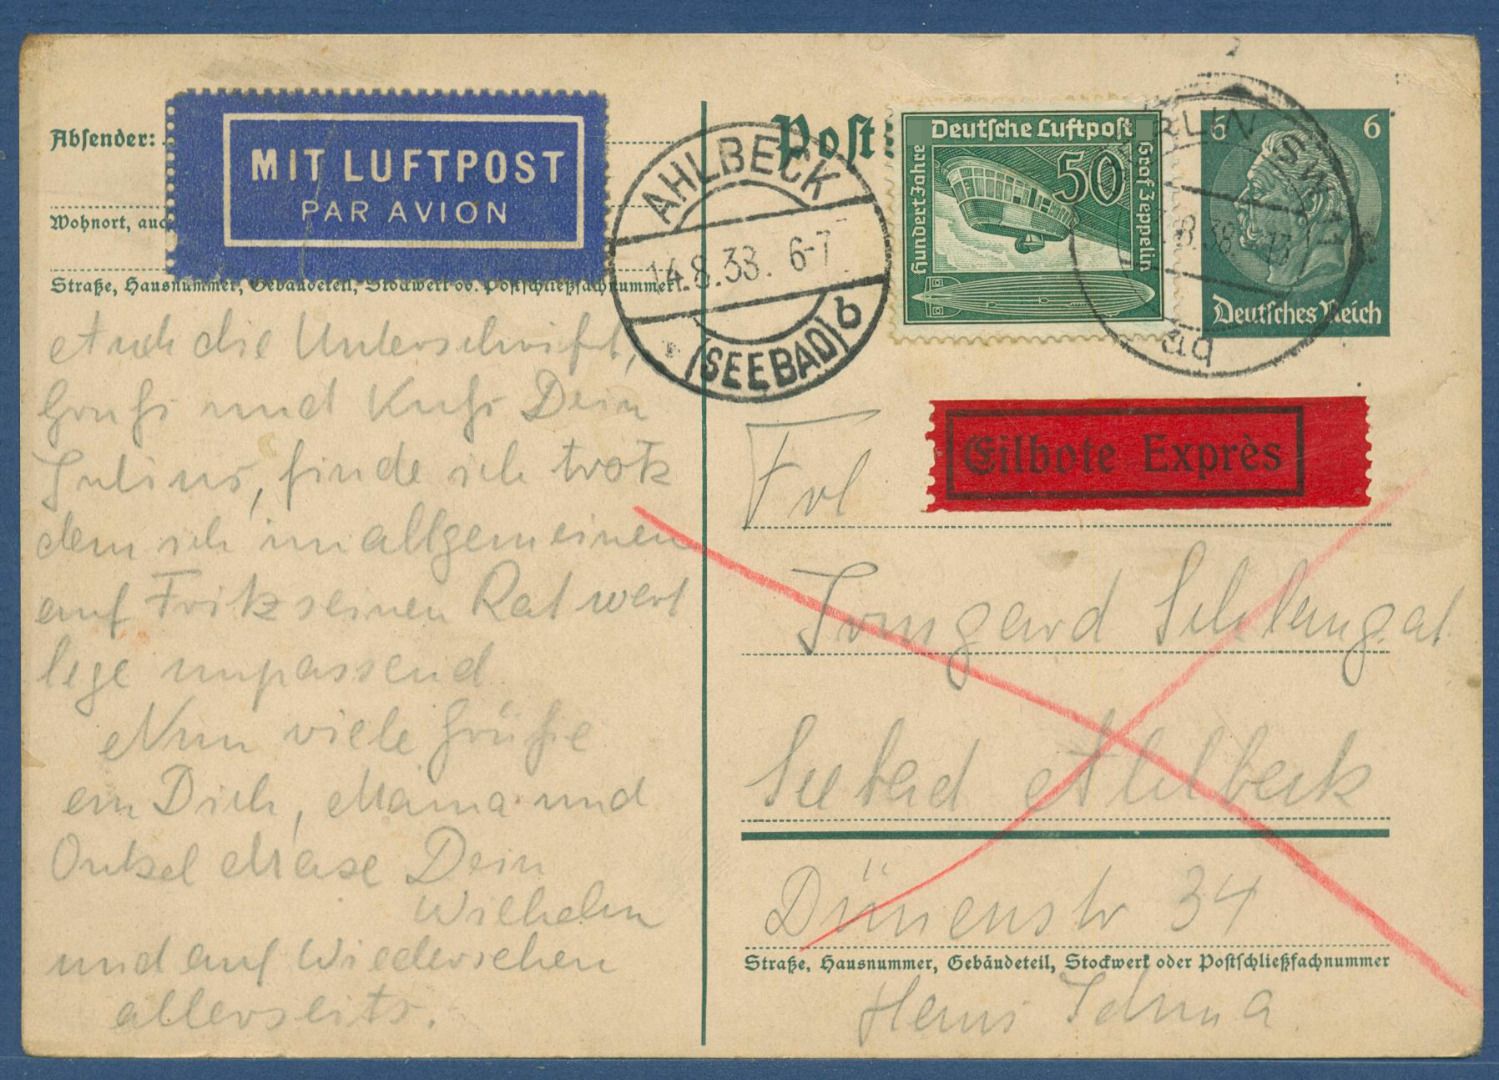 Absender:
MIT LUFTPOST
PAR AVION
Wohnort, auc
Straße, Hausnummer, Gebäudeteil, Stockwerk od. Postschließfachnummer
Auch die Unterschrift,
Gruß und Kuß Dein
Julius, finde ich trotz
dem ich im allgemeinen
auf Fritz seinen Rat wert
lege unpassend.
Nun viele Grüße
an Dich, Mama und
Onkel Maxe Dein
Wilhelm
und auf Wiedersehen
allerseits.
Post
AHLBECK
14.8.38. 6-7
(SEEBAD) b
Deutsche Luftpost
Hundert Jahre
50
Graf Zeppelin
RLIN SW 11
8.38. 13
aq
6 6
Deutsches Reich
Eilbote Exprès
Frl
Irmgard Schlangat
Seebad Ahlbeck
Dünenstr 34
Straße, Hausnummer, Gebäudeteil, Stockwerk oder Postschließfachnummer
Haus Iduna